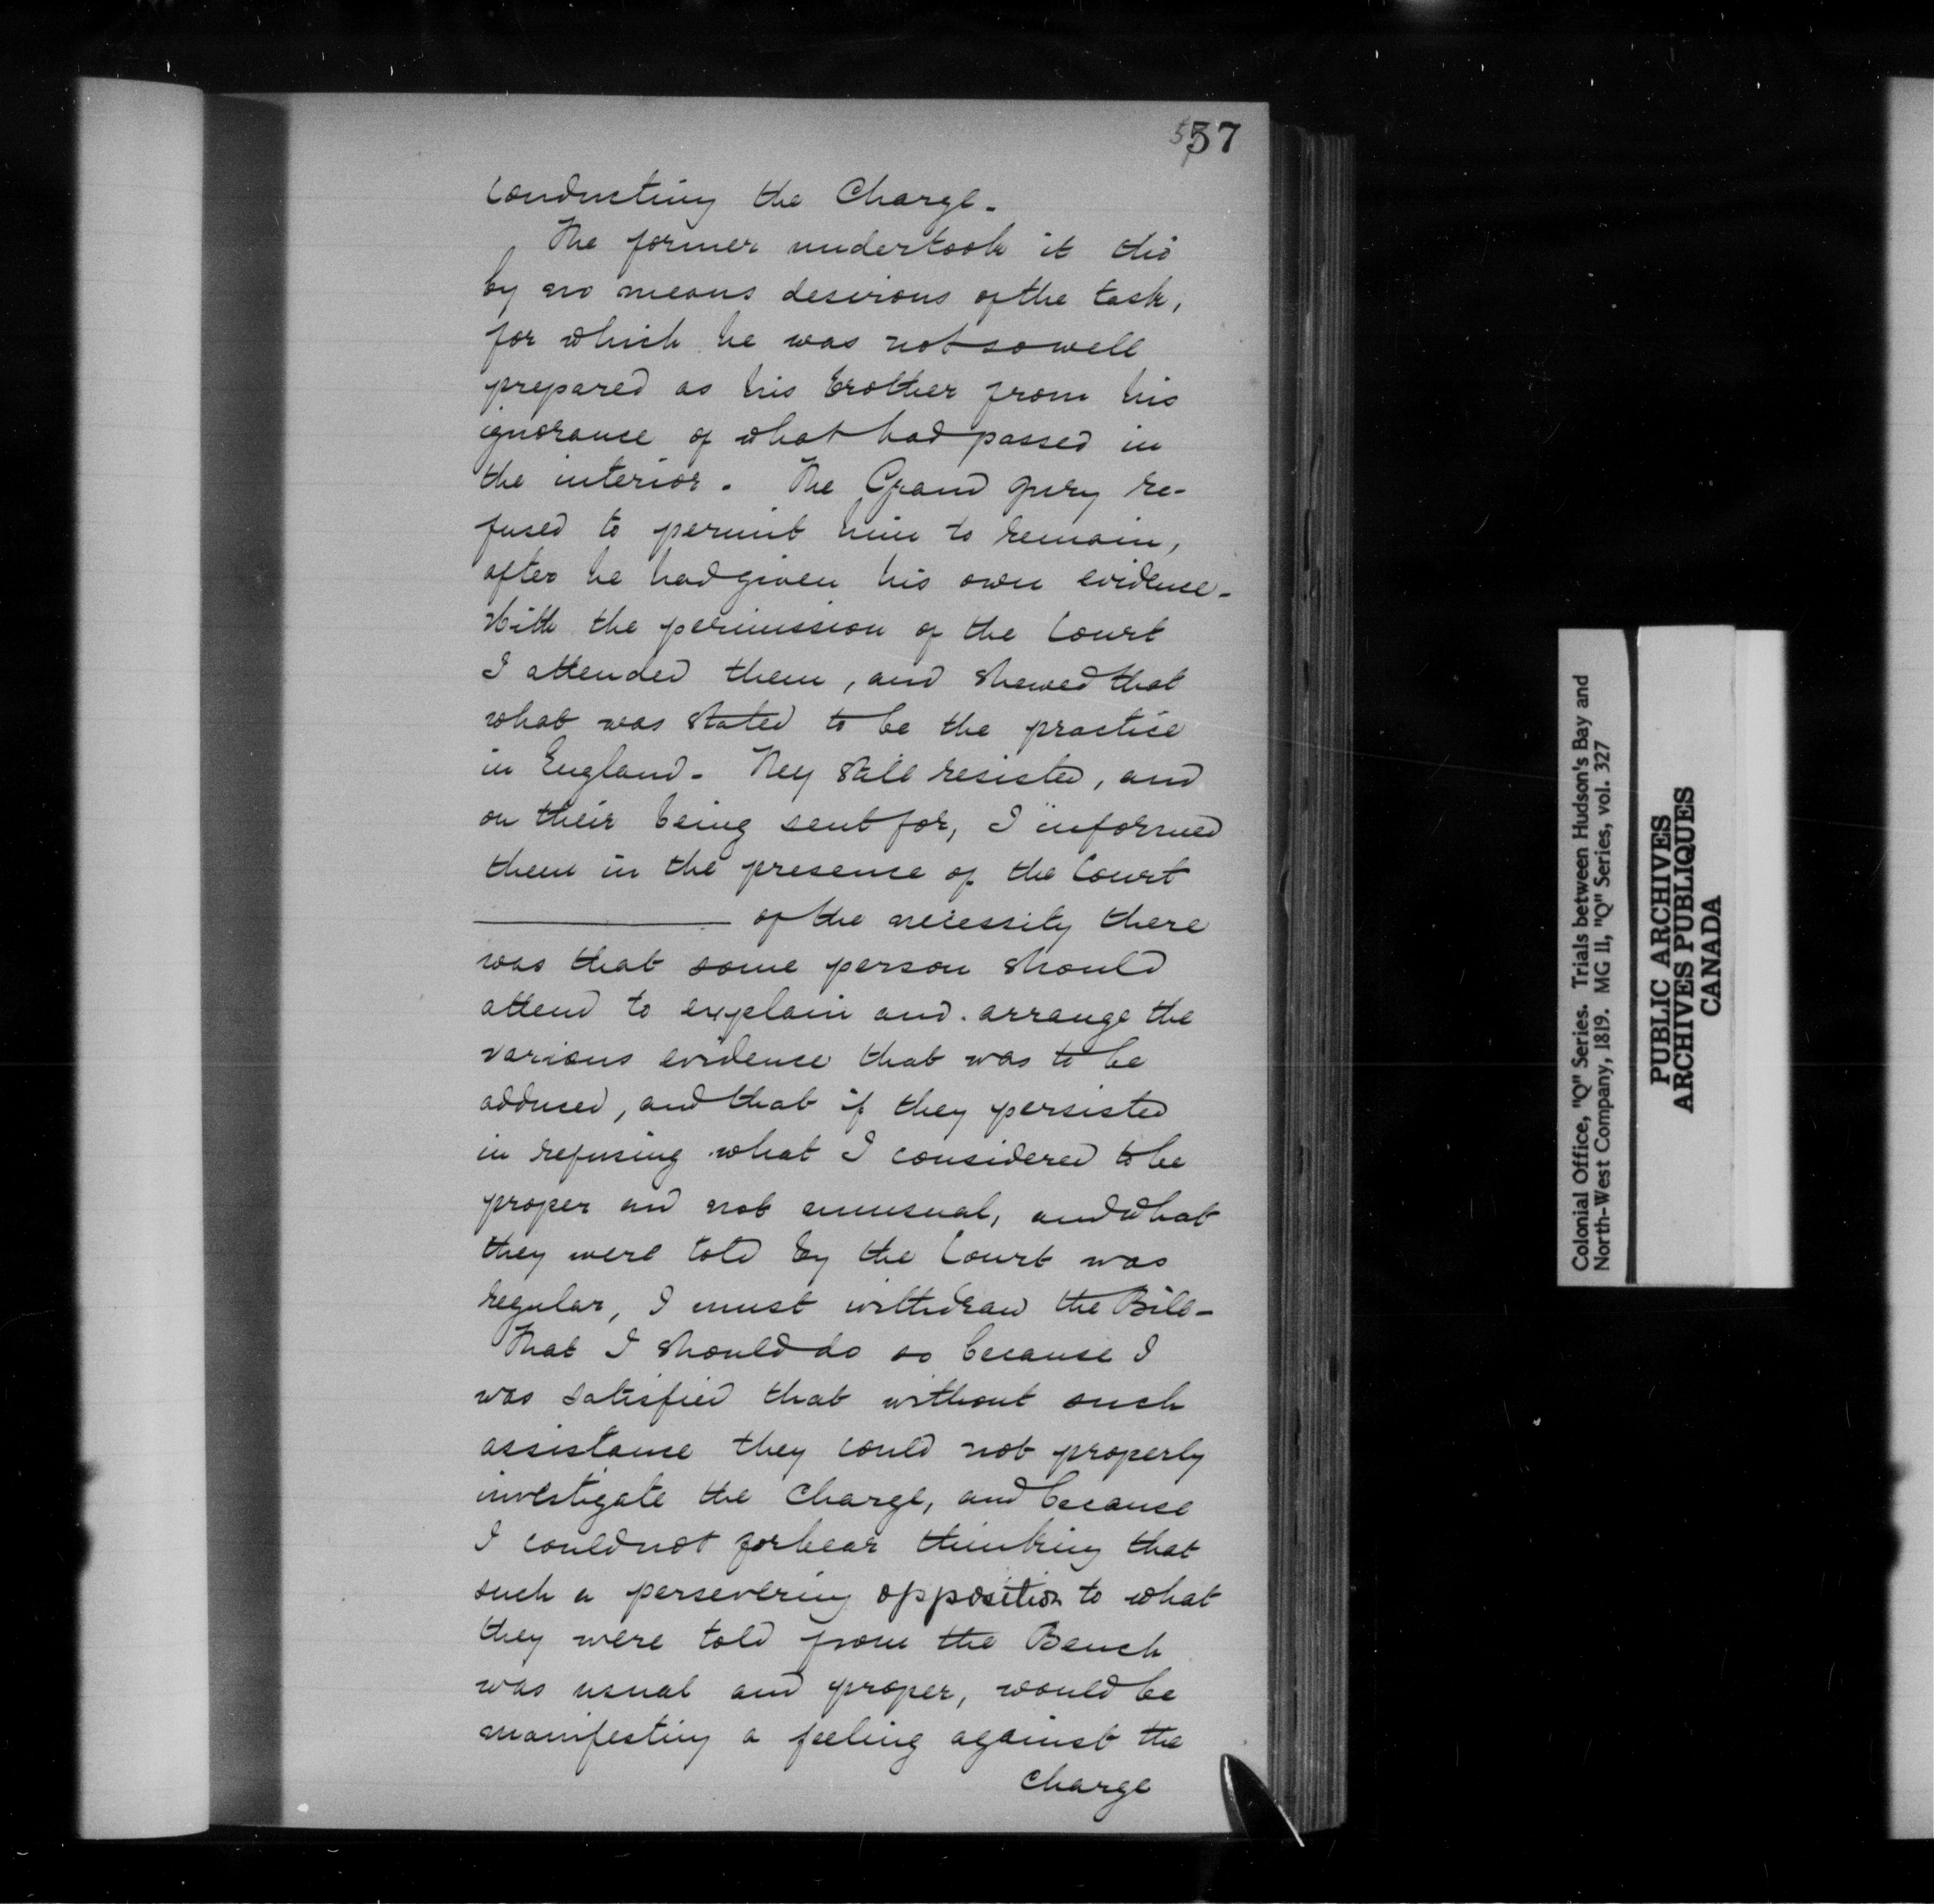 57
conducting the Charge.
The former undertook it tho'
by no means desirous of the task,
for which he was not so well
prepared as his brother from his
ignorance of what had passed in
the interior. The Grand Jury re-
fused to permit him to remain,
after he had given his own evidence.
With the permission of the Court
I attended them, and shewed that
what was stated to be the practice
in England. They still resisted, and
on their being sent for, I informed
them in the presence of the Court
of the necessity there
was that some person should
attend to explain and arrange the
various evidence that was to be
adduced, and that if they persisted
in refusing what I considered to be
proper and not unusual, and what
they were told by the Court was
regular, I must withdraw the Bill—
That I should do so because I
was satisfied that without such
assistance they could not properly
investigate the charge, and because
I could not forbear thinking that
such a persevering opposition to what
they were told from the Bench
was usual and proper, would be
manifesting a feeling against the
charge
Colonial Office, "Q" Series. Trials between Hudson's Bay and
North-West Company, 1819. MG 11, "Q" Series, vol. 327
PUBLIC ARCHIVES
ARCHIVES PUBLIQUES
CANADA